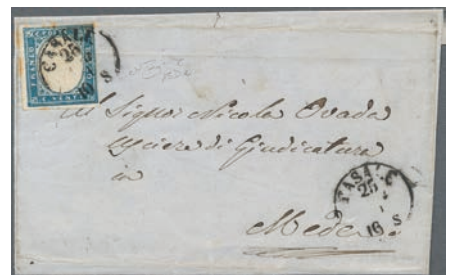 CASALE
25
10 S
Al Signor Nicola Ovada
Usciere di Giudicatura
in
CASALE
25
10 S
Mede